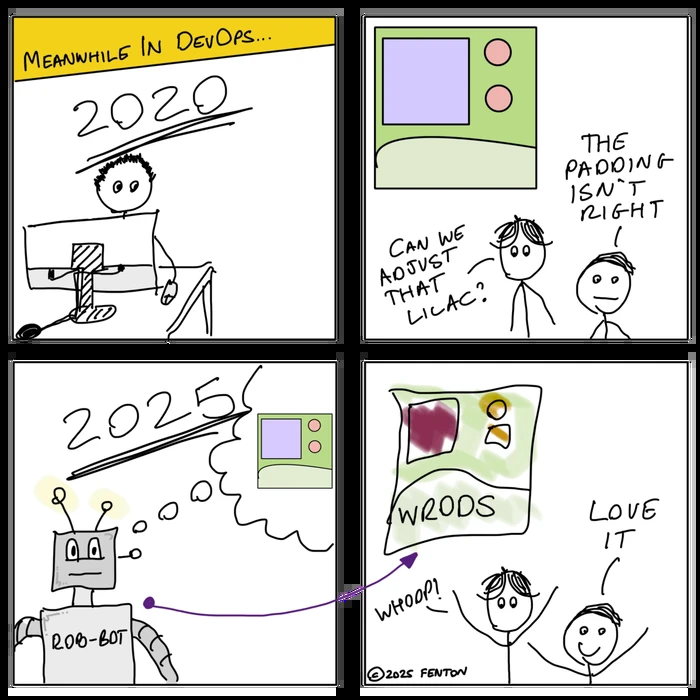 MEANWHILE IN DEVOPS...
2020
CAN WE
ADJUST
THAT
LILAC?
THE
PADDING
ISN'T
RIGHT
2025
ROB-BOT
WRODS
WHOOP!
LOVE
IT
©2025 FENTON